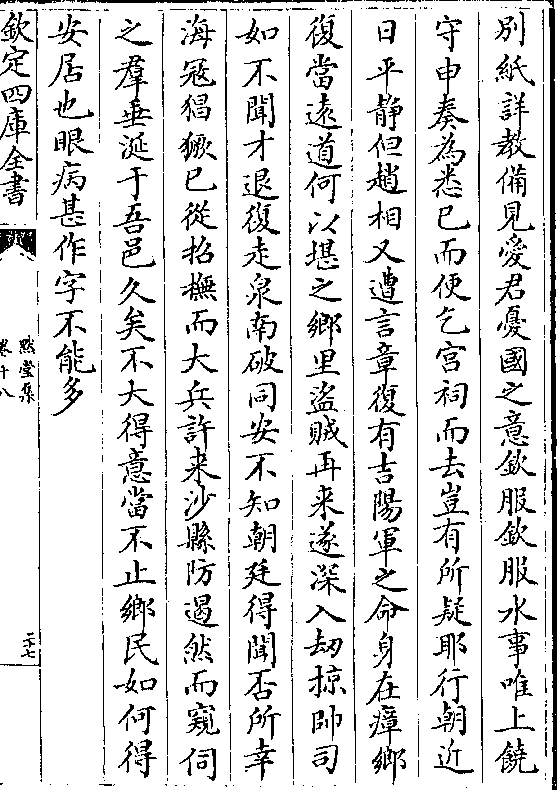 別紙詳教備見愛君憂國之意欽服欽服水事唯上饒
守申奏為悉已而便乞宫祠而去豈有所疑耶行朝近
日平静但趙相又遭言章復有吉陽軍之命身在瘴鄉
復當逺道何以堪之鄉里盗賊再来遂深入刼掠帥司
如不聞才退復走泉南破同安不知朝廷得聞否所幸
海宼猖獗已從招撫而大兵許来沙縣防遏然而窺伺
之羣垂涎于吾邑久矣不大得意當不止鄉民如何得
安居也眼病甚作字不能多
欽定四庫全書
默堂集
卷十八
二十七